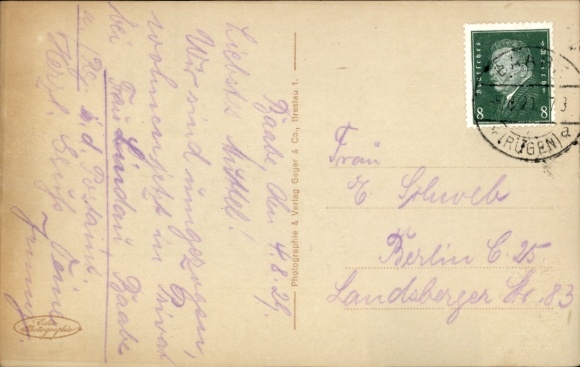 Baabe, den 4.8.29.
Liebste Muttel!
Wir sind umgezogen,
wohnen jetzt in Privat
bei Frau Lindau Baabe
a. Rg. i. d. Postamt.
Herzl. Grüße Deine
Photographie & Verlag Geger & Co., Breslau 1.
Echte
Photographie
Deutsches Reich
8 8
(RÜGEN) a
Frau
E. Schweb
Berlin C. 25.
Landsberger Str. 83